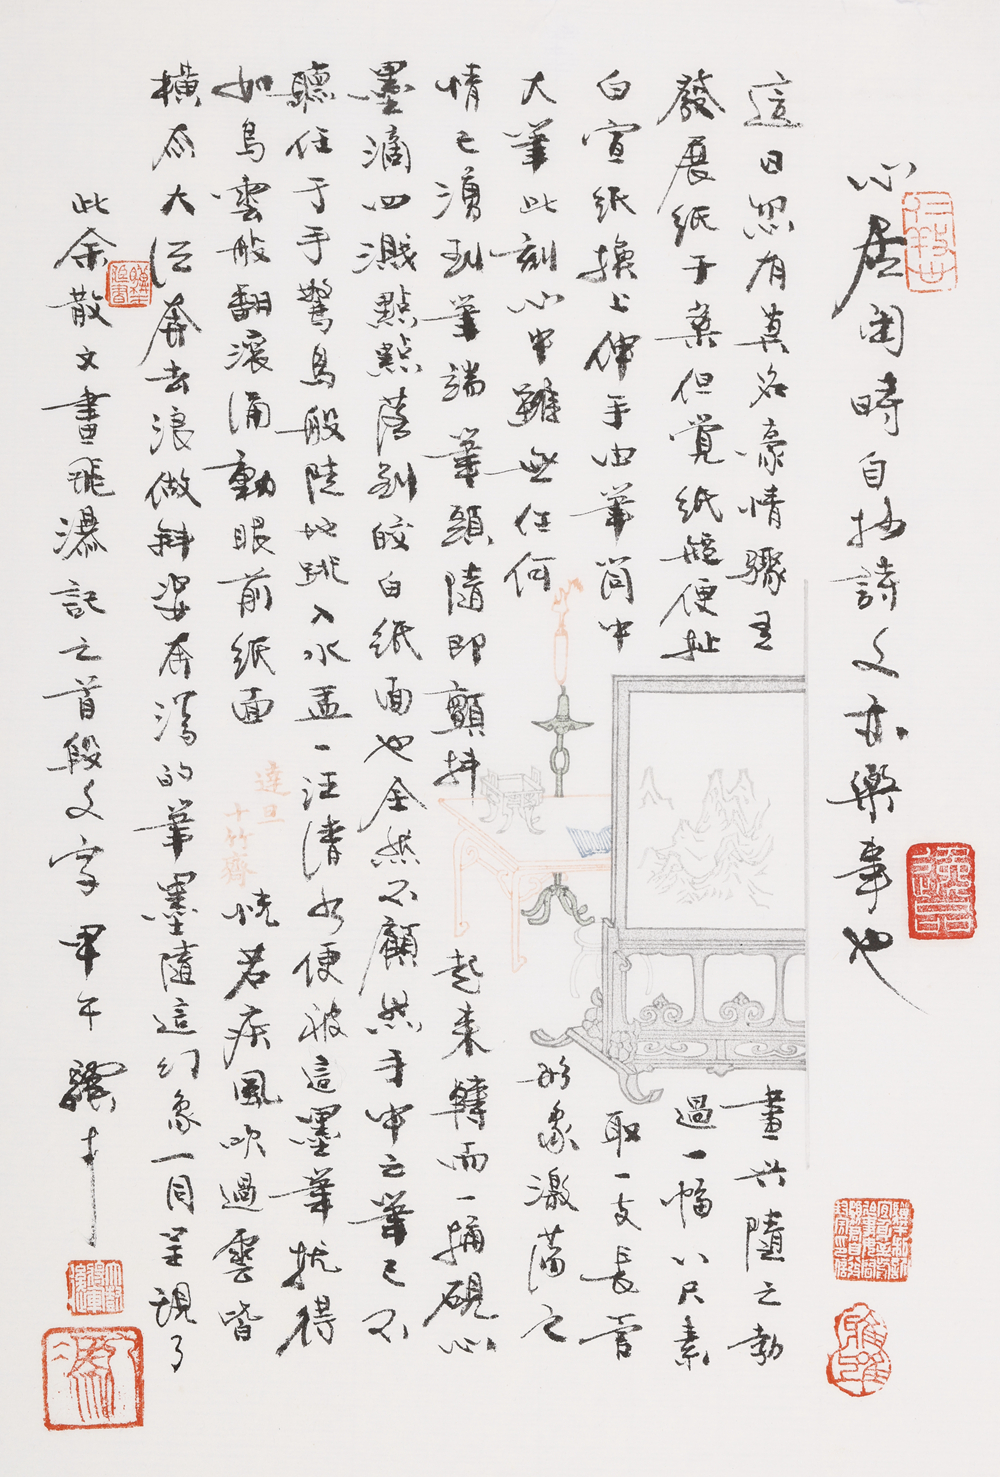 心居閑時自抄詩文亦樂事也
這日忽有莫名豪情驟至畫興隨之勃
發展紙于案但覺紙短便扯過一幅八尺素
白宣紙換上伸手由筆筒中取一支長管
大筆此刻心中雖無任何形象激蕩之
情已湧到筆端筆頭隨即顫抖起來轉而一捅硯心
墨滴四濺點點落到皎白紙面也全然不顧然手中之筆已不
聽任于手驚鳥般陡地跳入水盂一汪清水便被這墨筆攪得
如烏雲般翻滾涌動眼前紙面恍若疾風吹過雲皆
橫態大江奔去浪做斜姿奔瀉的筆墨隨這幻象一同呈現了
此余散文畫飛瀑記之首段文字甲午驥才
達旦
十竹齋